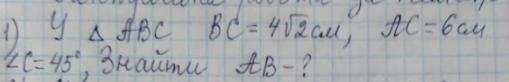 1) У △ ABC BC = 4√2 см, AC = 6 см
∠C = 45°, Знайти AB - ?